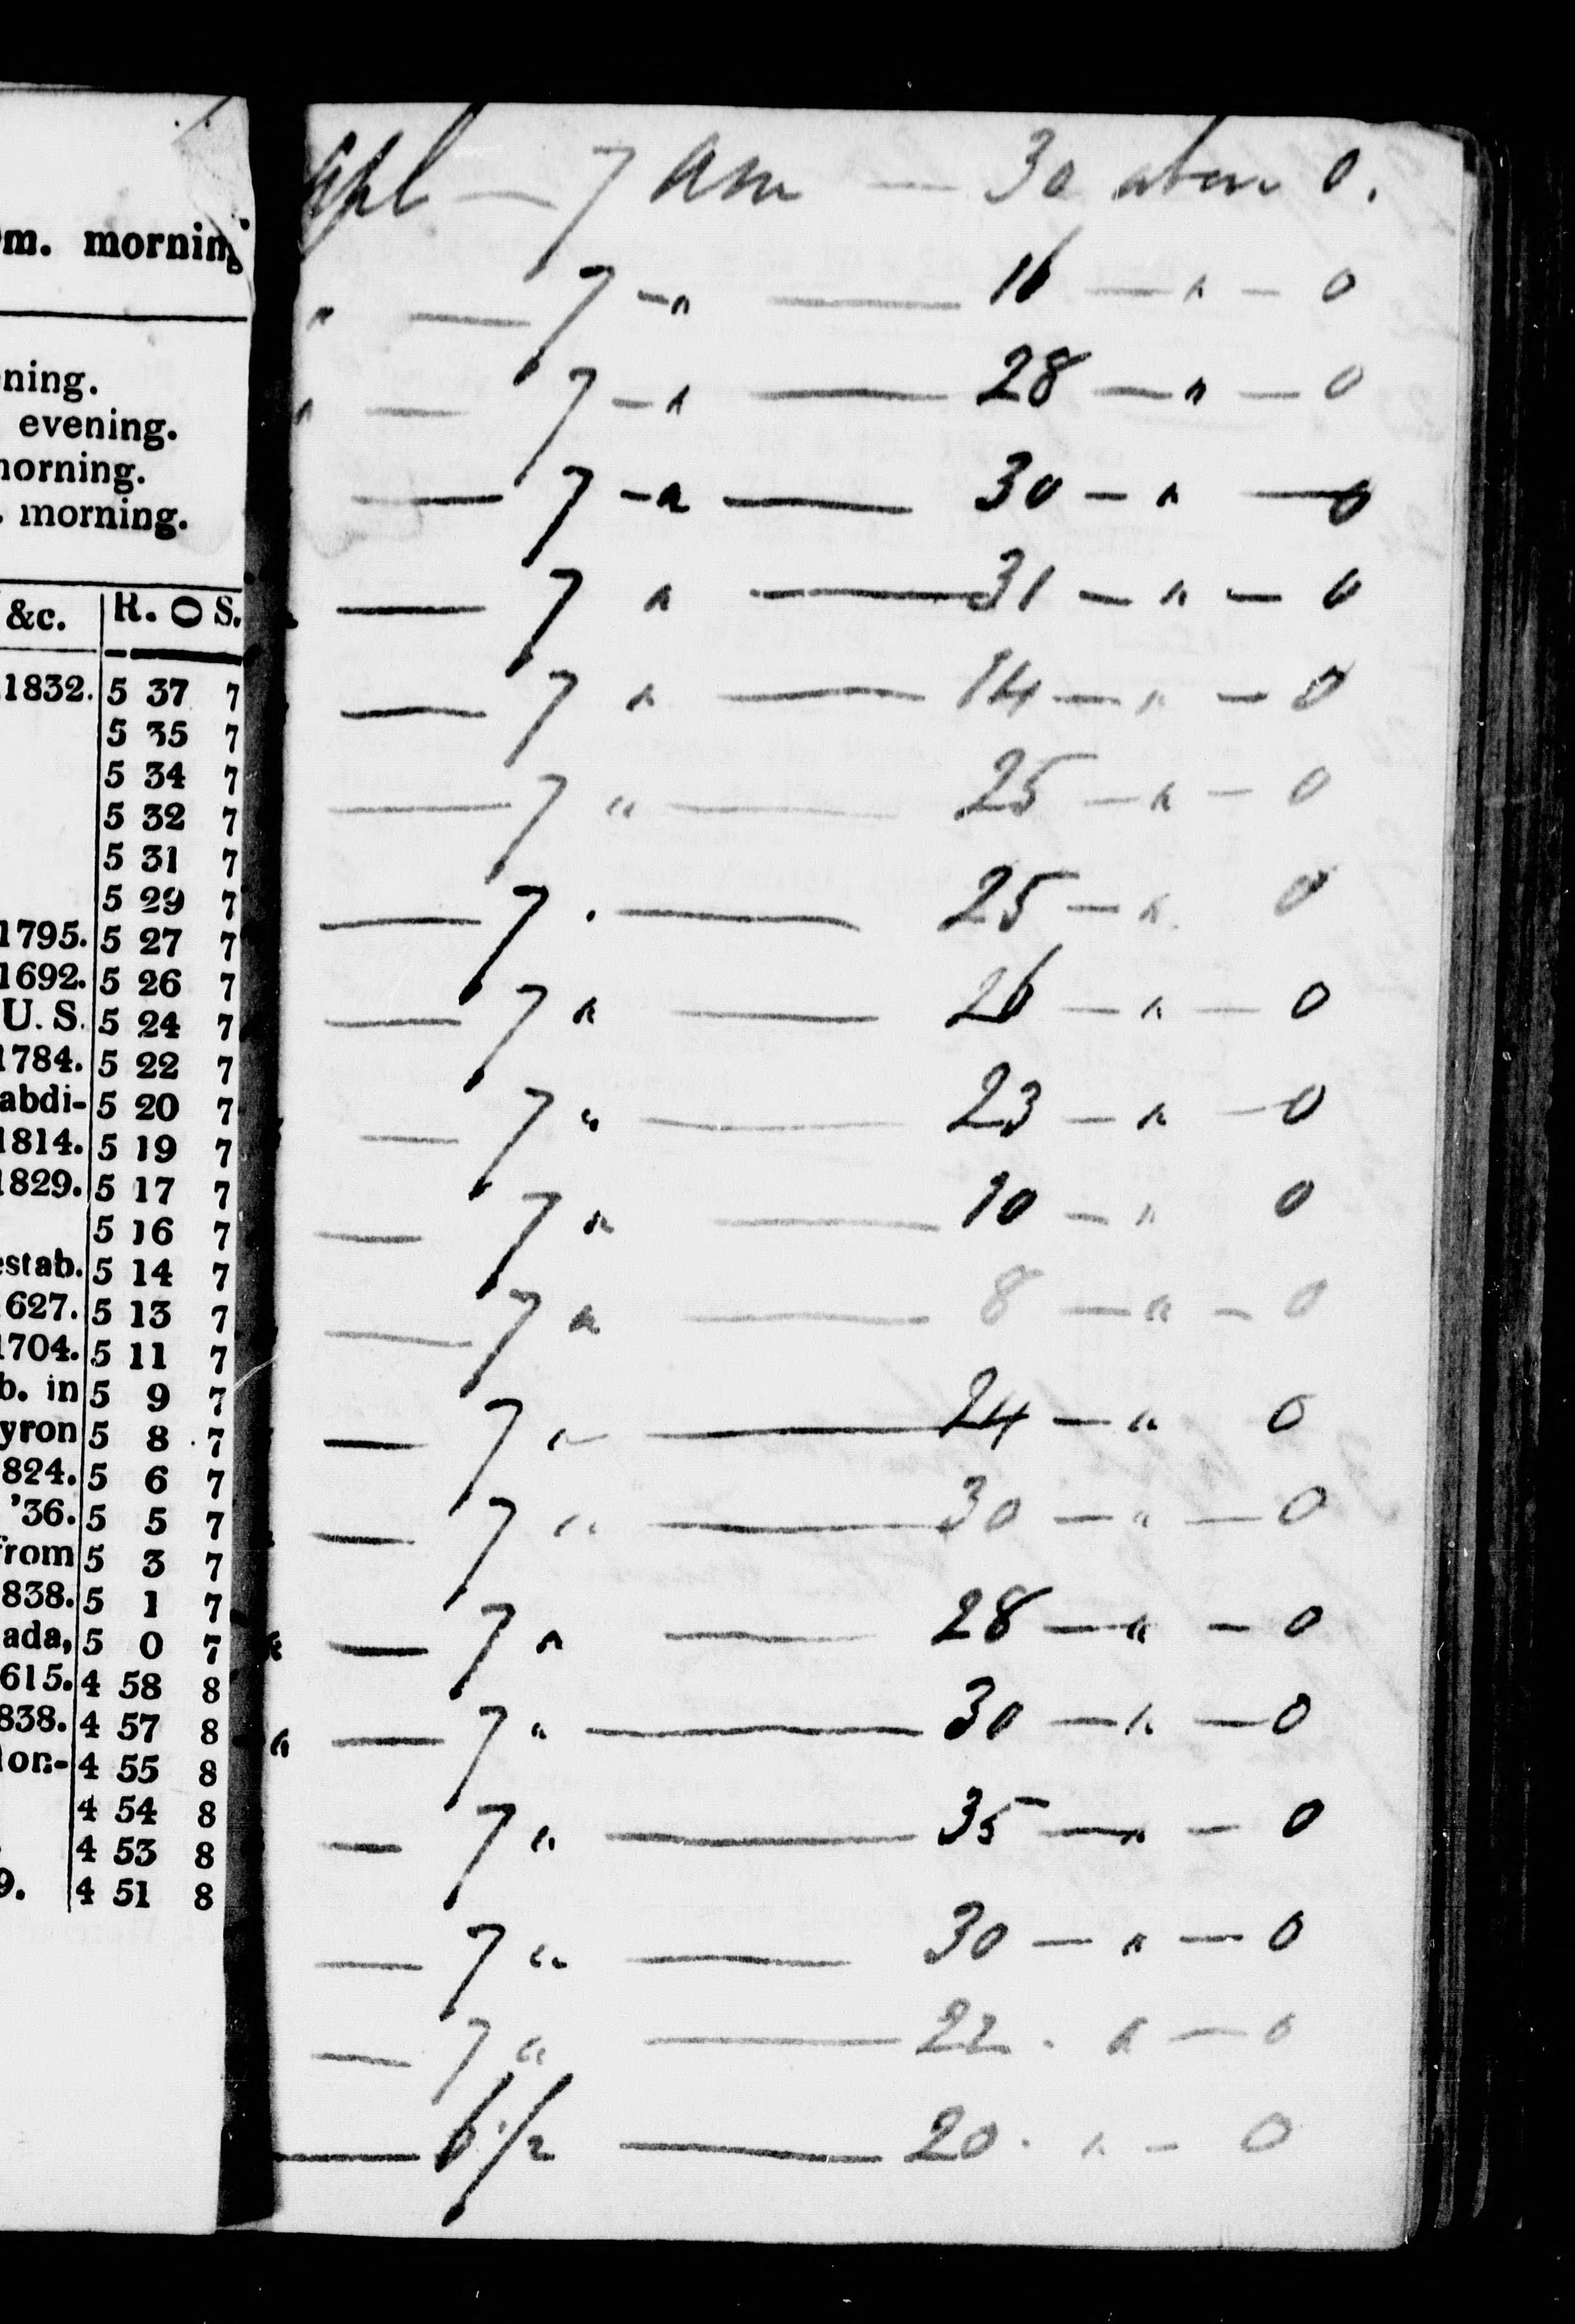 m. morning
ning.
evening.
norning.
. morning.
&c. R. O S.
1832. 5 37 7
5 35 7
5 34 7
5 32 7
5 31 7
5 29 7
1795. 5 27 7
1692. 5 26 7
U. S. 5 24 7
1784. 5 22 7
abdi- 5 20 7
1814. 5 19 7
1829. 5 17 7
5 16 7
estab. 5 14 7
627. 5 13 7
1704. 5 11 7
b. in 5 9 7
yron 5 8 7
824. 5 6 7
'36. 5 5 7
from 5 3 7
838. 5 1 7
ada, 5 0 7
615. 4 58 8
838. 4 57 8
lon- 4 55 8
4 54 8
4 53 8
9. 4 51 8
Apl — 7 am — 30 above 0.
" — 7 - " — 16 — " — 0
" — 7 - " — 28 — " — 0
— 7 - " — 30 — " — 0
— 7 " — 31 — " — 0
— 7 " — 14 — " — 0
— 7 " — 25 — " — 0
— 7 . — 25 — " 0
— 7 " — 26 — " — 0
— 7 " — 23 — " — 0
— 7 " — 10 — " 0
— 7 " — 8 — " — 0
— 7 " — 24 — " 0
— 7 " — 30 — " — 0
" — 7 " — 28 — " — 0
" — 7 " — 30 — " — 0
— 7 " — 35 — " — 0
— 7 " — 30 — " — 0
— 7 " — 22 . " — 0
— 6 1/2 — 20 . " — 0